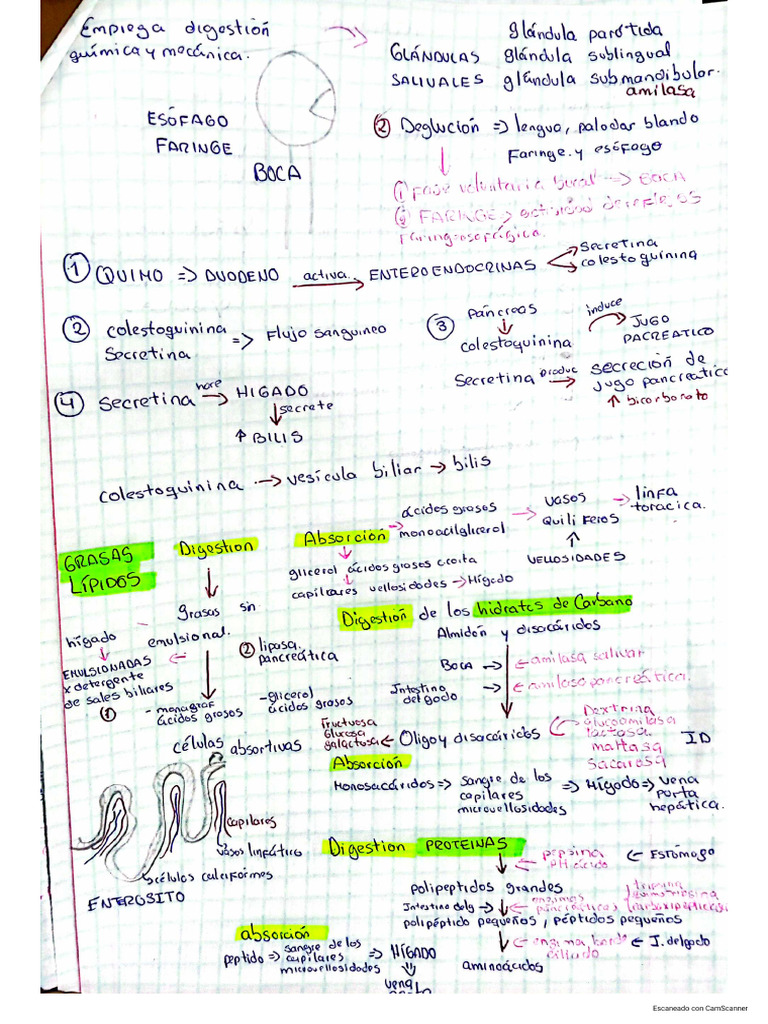 Empieza digestión
química y mecánica.
glándula parótida
GLÁNDULAS glándula sublingual
SALIVALES glándula submandibular.
amilasa
ESÓFAGO
FARINGE
BOCA
② Deglución => lengua, paladar blando
Faringe y esófago
① Fase voluntaria bucal -> BOCA
② FARINGE > actividad de reflejos
faringoesofágica.
① QUIMO => DUODENO activa ENTEROENDOCRINAS
Secretina
colestoquinina
② colestoquinina => Flujo sanguineo
Secretina
③ páncreas
colestoquinina
induce
JUGO
PACREATICO
Secretina produc secreción de
jugo pancreatico
↑ bicorbonato
④ Secretina HIGADO
secrete
↑ BILIS
colestoquinina -> vesícula biliar -> bilis
GRASAS
LÍPIDOS
Digestion
grasas sin
emulsional.
hígado
EMULSIONADAS
x detergente
de sales biliares
①
② lipasa
pancreática
ácidos grasos
- glicerol
ácidos grasos
Absorción
ácidos grasos
monoacilglicerol
vasos
Quiliferos
linfa
toracica.
VELLOSIDADES
glicerol ácidos grasos
capilares vellosidades -> Hígado
Digestión de los hidratos de Carbano
Almidón y disacáridos
BOCA -> amilasa salivar
Intestino
delgado -> amilasa pancreática.
Fructuosa
Glucosa
galactosa
Oligo y disacáridos
Dextrina
Glucoamilasa
lactosa
maltasa
sacarosa
ID
Absorción
Monosacáridos => sangre de los
capilares
microvellosidades
=> Hígado => vena
porta
hepática.
células absortivas
capilares
vasos linfático
células caliciformes
ENTEROSITO
Digestion PROTEINAS
pepsina
<= ESTÓMAGO
polipeptidos grandes
Intestino delg -> enzimas
pancreáticos
polipéptido pequeños, péptidos pequeños
enzima borde
<= I. delgado
aminoácidos
absorción
peptido => sangre de los
capilares
microvellosidades
=> HÍGADO
vena
Escaneado con CamScanner